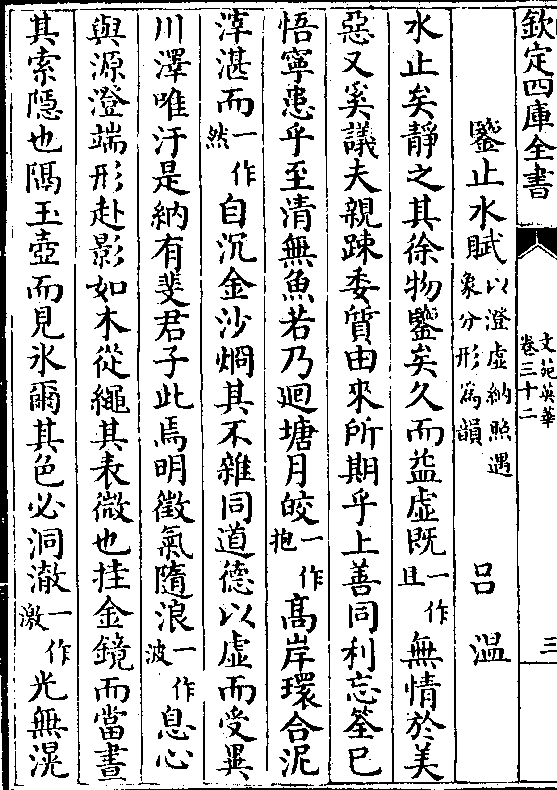 欽定四庫全書
文苑英華
卷三十二
三
鑒止水賦以澄虛納照遇象分形為韻 吕温
水止矣靜之其徐物鑒矣久而益虛既一作且無情於美
惡又奚議夫親踈委質由來所期乎上善同利忘筌已
悟寧患乎至清無魚若乃迴塘月皎一作抱高岸環合泥
滓湛而一作然自沉金沙烱其不雜同道德以虛而受異
川澤唯汙是納有斐君子此焉明徵氣隨浪一作波息心
與源澄端形赴影如木從繩其表微也挂金鏡而當晝
其索隱也隔玉壺而見氷爾其色必洞澈一作激光無滉